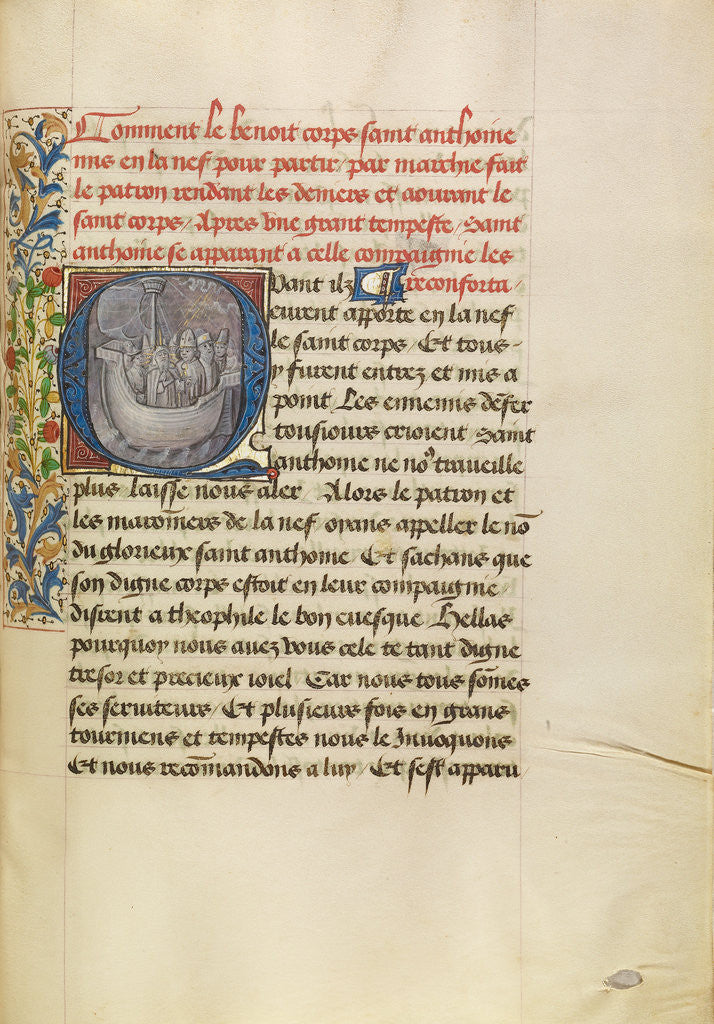 Comment le benoit corps saint anthoine
mis en la nef pour partir / par marchie fait
le patron rendant les deniers et aourant le
saint corps / Apres vne grant tempeste / Saint
anthoine se apparant a celle compaignie les
reconforta /
Quant ilz
eurent apporte en la nef
le saint corps / Et tous -
y furent entrez et mis a
point Les ennemis denfer
tousiours crioient Saint
anthoine ne no9 traueille
plus laisse nous aler / Alors le patron et
les maron̄iers de la nef oyans appeller le nō
du glorieux saint anthoine Et sachans que
son digne corps estoit en leur compaignie /
dirent a theophile le bon euesque Hellas
pourquoy nous auez vous cele te tant digne
tresor et precieux ioiel Car nous tous sōmes
ses seruiteurs / Et plusieurs fois en grans
tourmens et tempestes nous le Inuoquons
Et nous recōmandons a luy / Et sest apparu